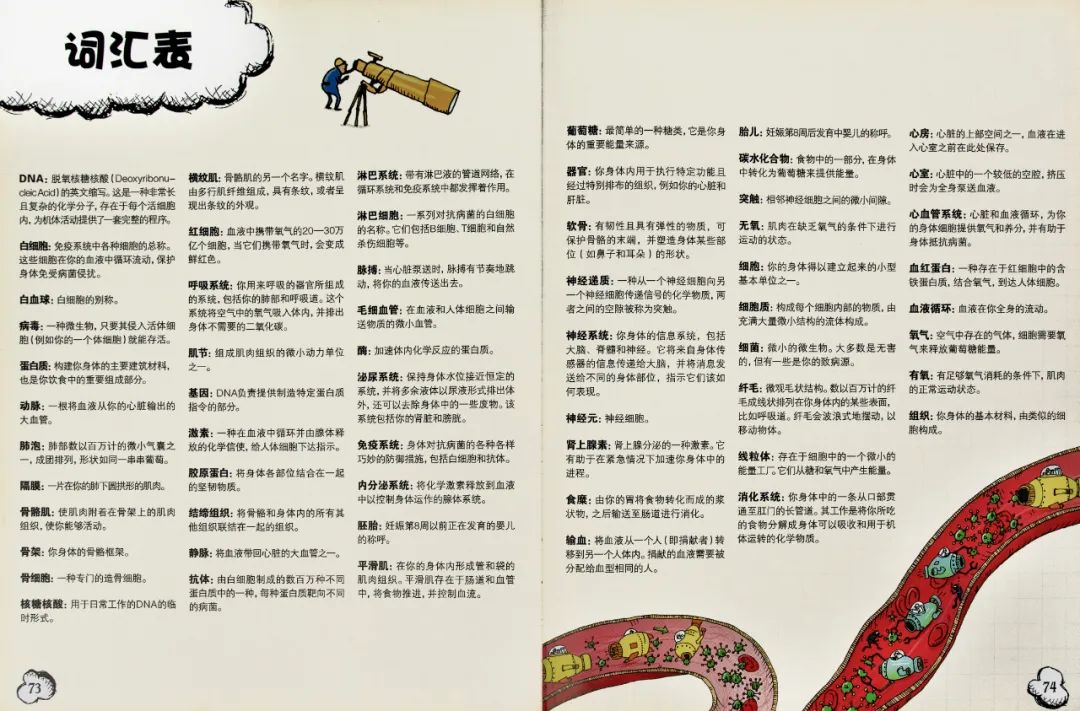 词汇表
DNA: 脱氧核糖核酸 (Deoxyribonu-
cleic Acid) 的英文缩写。这是一种非常长
且复杂的化学分子，存在于每个活细胞
内，为机体活动提供了一套完整的程序。
白细胞: 免疫系统中各种细胞的总称。
这些细胞在你的血液中循环流动，保护
身体免受病菌侵扰。
白血球: 白细胞的别称。
病毒: 一种微生物，只要其侵入活体细
胞 (例如你的一个体细胞) 就能存活。
蛋白质: 构建你身体的主要建筑材料，
也是你饮食中的重要组成部分。
动脉: 一根将血液从你的心脏输出的
大血管。
肺泡: 肺部数以百万计的微小气囊之
一，成团排列，形状如同一串串葡萄。
隔膜: 一片在你的肺下圆拱形的肌肉。
骨骼肌: 使肌肉附着在骨架上的肌肉
组织，使你能够活动。
骨架: 你身体的骨骼框架。
骨细胞: 一种专门的造骨细胞。
核糖核酸: 用于日常工作的DNA的临
时形式。
横纹肌: 骨骼肌的另一个名字。横纹肌
由多行肌纤维组成，具有条纹，或者呈
现出条纹的外观。
红细胞: 血液中携带氧气的20—30万
亿个细胞，当它们携带氧时，会变成
鲜红色。
呼吸系统: 你用来呼吸的器官所组成
的系统，包括你的肺部和呼吸道。这个
系统将空气中的氧气吸入体内，并排出
身体不需要的二氧化碳。
肌节: 组成肌肉组织的微小动力单位
之一。
基因: DNA负责提供制造特定蛋白质
指令的部分。
激素: 一种在血液中循环并由腺体释
放的化学信使，给人体细胞下达指示。
胶原蛋白: 将身体各部位结合在一起
的坚韧物质。
结缔组织: 将骨骼和身体内的所有其
他组织联结在一起的组织。
静脉: 将血液带回心脏的大血管之一。
抗体: 由白细胞制成的数百万种不同
蛋白质中的一种，每种蛋白质靶向不同
的病菌。
淋巴系统: 带有淋巴液的管道网络，在
循环系统和免疫系统中都发挥着作用。
淋巴细胞: 一系列对抗病菌的白细胞
的名称。它们包括B细胞、T细胞和自然
杀伤细胞等。
脉搏: 当心脏泵送时，脉搏有节奏地跳
动，将你的血液传送出去。
毛细血管: 在血液和人体细胞之间输
送物质的微小血管。
酶: 加速体内化学反应的蛋白质。
泌尿系统: 保持身体水位接近恒定的
系统，并将多余液体以尿液形式排出体
外，还可以去除身体中的一些废物。该
系统包括你的肾脏和膀胱。
免疫系统: 身体对抗病菌的各种各样
巧妙的防御措施，包括白细胞和抗体。
内分泌系统: 将化学激素释放到血液
中以控制身体运作的腺体系统。
胚胎: 妊娠第8周以前正在发育的婴儿
的称呼。
平滑肌: 在你的身体内形成管和袋的
肌肉组织。平滑肌存在于肠道和血管
中，将食物推进，并控制血流。
73
葡萄糖: 最简单的一种糖类，它是你身
体的重要能量来源。
器官: 你身体内用于执行特定功能且
经过特别排布的组织，例如你的心脏和
肝脏。
软骨: 有韧性且具有弹性的物质，可
保护骨骼的末端，并塑造身体某些部
位 (如鼻子和耳朵) 的形状。
神经递质: 一种从一个神经细胞向另
一个神经细胞传递信号的化学物质，两
者之间的空隙被称为突触。
神经系统: 你身体的信息系统，包括
大脑、脊髓和神经。它将来自身体传感
器的信息传递给大脑，并将消息发
送给不同的身体部位，指示它们该如
何表现。
神经元: 神经细胞。
肾上腺素: 肾上腺分泌的一种激素。它
有助于在紧急情况下加速你身体中的
进程。
食糜: 由你的胃将食物转化而成的浆
状物，之后输送至肠道进行消化。
输血: 将血液从一个人 (即捐献者) 转
移到另一个人体内。捐献的血液需要被
分配给血型相同的人。
胎儿: 妊娠第8周后发育中婴儿的称呼。
碳水化合物: 食物中的一部分，在身体
中转化为葡萄糖来提供能量。
突触: 相邻神经细胞之间的微小间隙。
无氧: 肌肉在缺乏氧气的条件下进行
运动的状态。
细胞: 你的身体得以建立起来的小型
基本单位之一。
细胞质: 构成每个细胞内部的物质，由
充满大量微小结构的流体构成。
细菌: 微小的微生物。大多数是无害
的，但有一些是你的致病源。
纤毛: 微观毛状结构。数以百万计的纤
毛成线状排列在你身体内的某些表面，
比如呼吸道。纤毛会波浪式地摆动，以
移动物体。
线粒体: 存在于细胞中的一个微小的
能量工厂，它们从糖和氧气中产生能量。
消化系统: 你身体中的一条从口部贯
通至肛门的长管道。其工作是将你所吃
的食物分解成身体可以吸收和用于机
体运转的化学物质。
心房: 心脏的上部空间之一，血液在进
入心室之前在此处保存。
心室: 心脏中的一个较低的空腔，挤压
时会为全身泵送血液。
心血管系统: 心脏和血液循环，为你
的身体细胞提供氧气和养分，并有助于
身体抵抗病菌。
血红蛋白: 一种存在于红细胞中的含
铁蛋白质，结合氧气，到达人体细胞。
血液循环: 血液在你全身的流动。
氧气: 空气中存在的气体，细胞需要氧
气来释放葡萄糖能量。
有氧: 在足够氧气消耗的条件下，肌肉
的正常运动状态。
组织: 你身体的基本材料，由类似的细
胞构成。
74